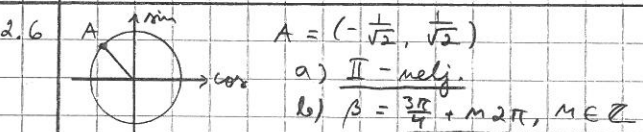 2.6 A sin cos A = (-1/√2, 1/√2)
a) II - nelj.
b) β = 3π/4 + n2π, n ∈ ℤ